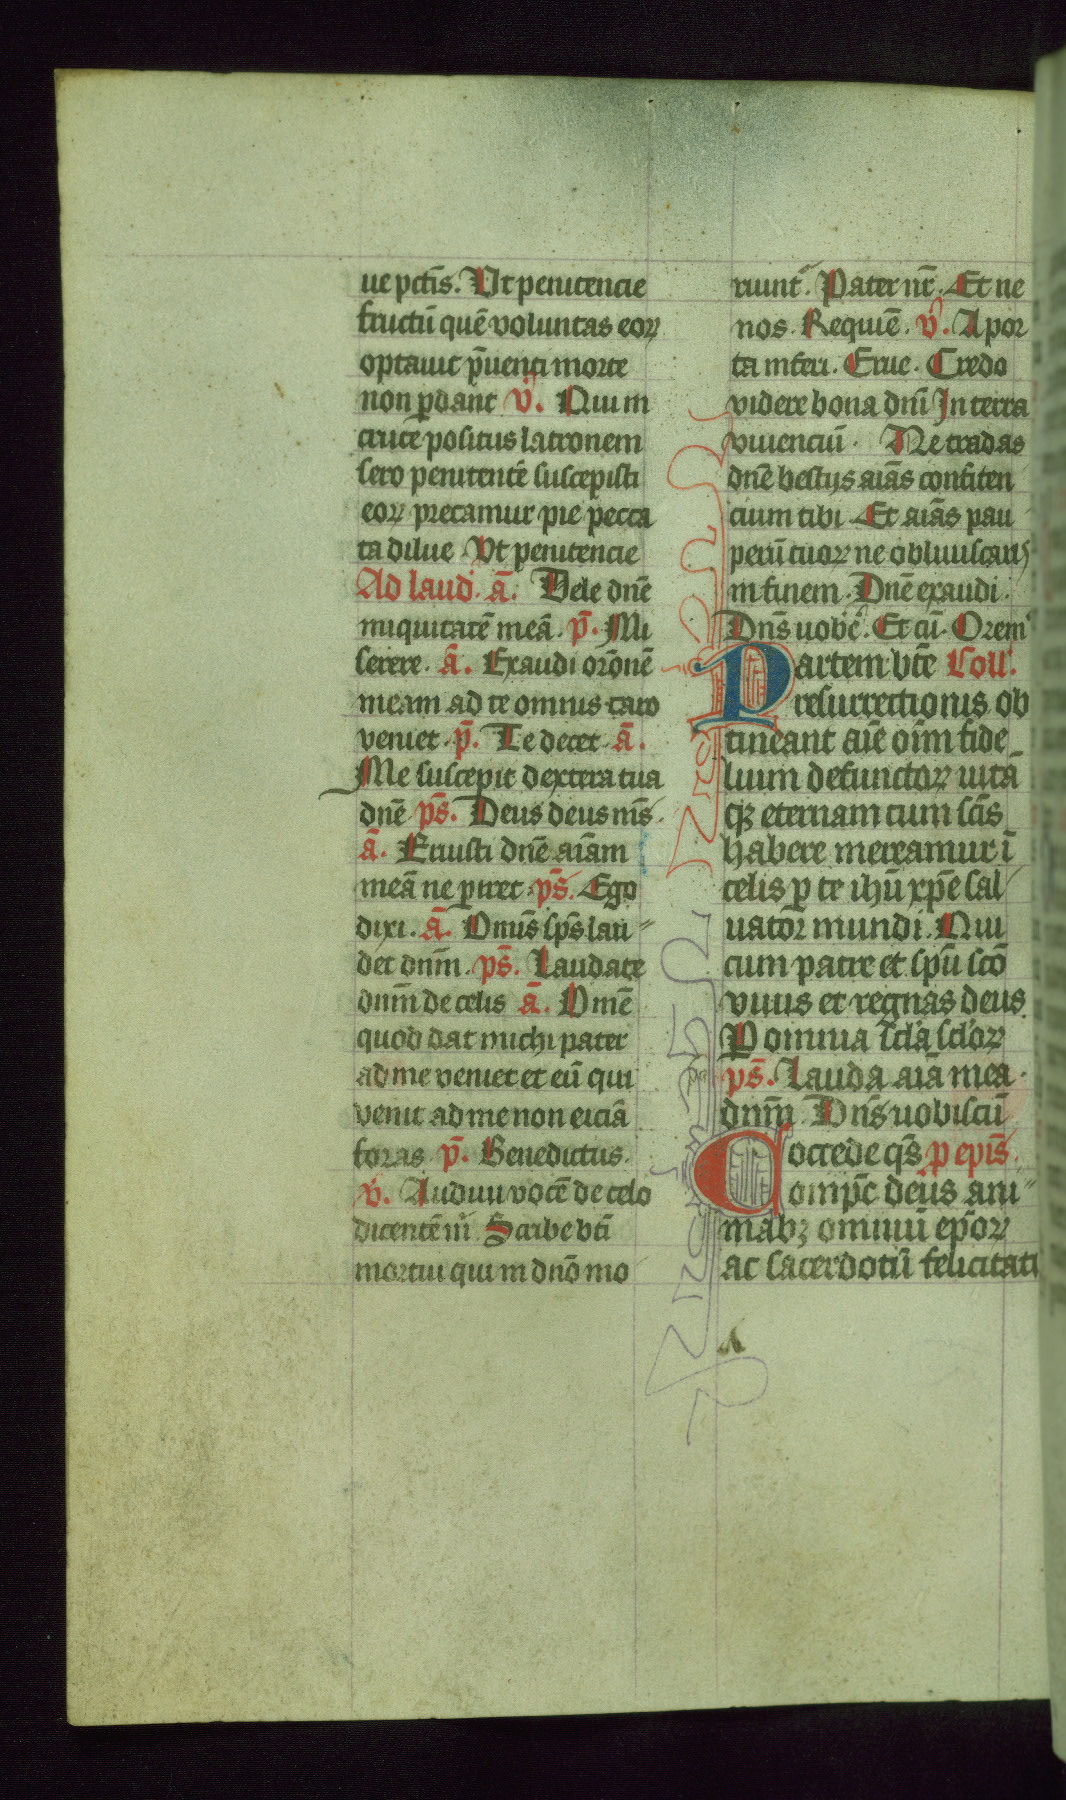 ue pctīs. Vt penitencie
fructū quē voluntas eoꝝ
optauit p̄uenti morte
non ꝑdant v̄. Qui in
cruce positus latronem
sero penitentē suscepisti
eoꝝ precamur pie pecca
ta dilue Vt penitencie
Ad laud. ā. Dele dnē
iniquitatē meā. p̄. Mi
serere. ā. Exaudi orōnē
meam ad te omnis caro
veniet. p̄. Te decet. ā.
Me suscepit dextera tua
dnē ps̄. Deus deus ms̄.
ā. Eruisti dnē aīam
meā ne ꝑiret. ps̄. Ego
dixi. ā. Omīs sps̄ lau
det dnm̄. ps̄. Laudate
dnm̄ de celis ā. Omē
quod dat michi pater
ad me veniet et eū qui
venit ad me non eiciā
foras. p̄. Benedictus.
v̄. Audiui vocē de celo
dicentē m̄. Scribe bt̄i
mortui qui in dnō mo
riunt̄. Pater nr̄. Et ne
nos. Requiē. v̄. A por
ta inferi. Erue. Credo
videre bona dnī In terra
viuenciū. Ne tradas
dnē bestijs aīas confiten
cium tibi Et aīas pau
perū tuoꝝ ne obliuiscaris
in finem. Dnē exaudi.
Dns̄ uobē. Et cū. Orem̄
Partem bt̄e Coll̄.
resurrectionis ob
tineant aīe oīm fide
lium defunctoꝝ uitā
qꝫ eternam cum scīs
habere mereamur ī
celis ꝑ te ihū xp̄e sal
uator mundi. Qui
cum patre et spū scō
viuis et regnas deus.
P omnia scl̄a scl̄oꝝ
ps̄. Lauda aīa mea.
dnm̄. Dns̄ uobiscū
Cocrede qs̄ p epis̄.
omīpc̄ deus ani
mabꝫ omniū ep̄oꝝ
ac sacerdotū felicitati